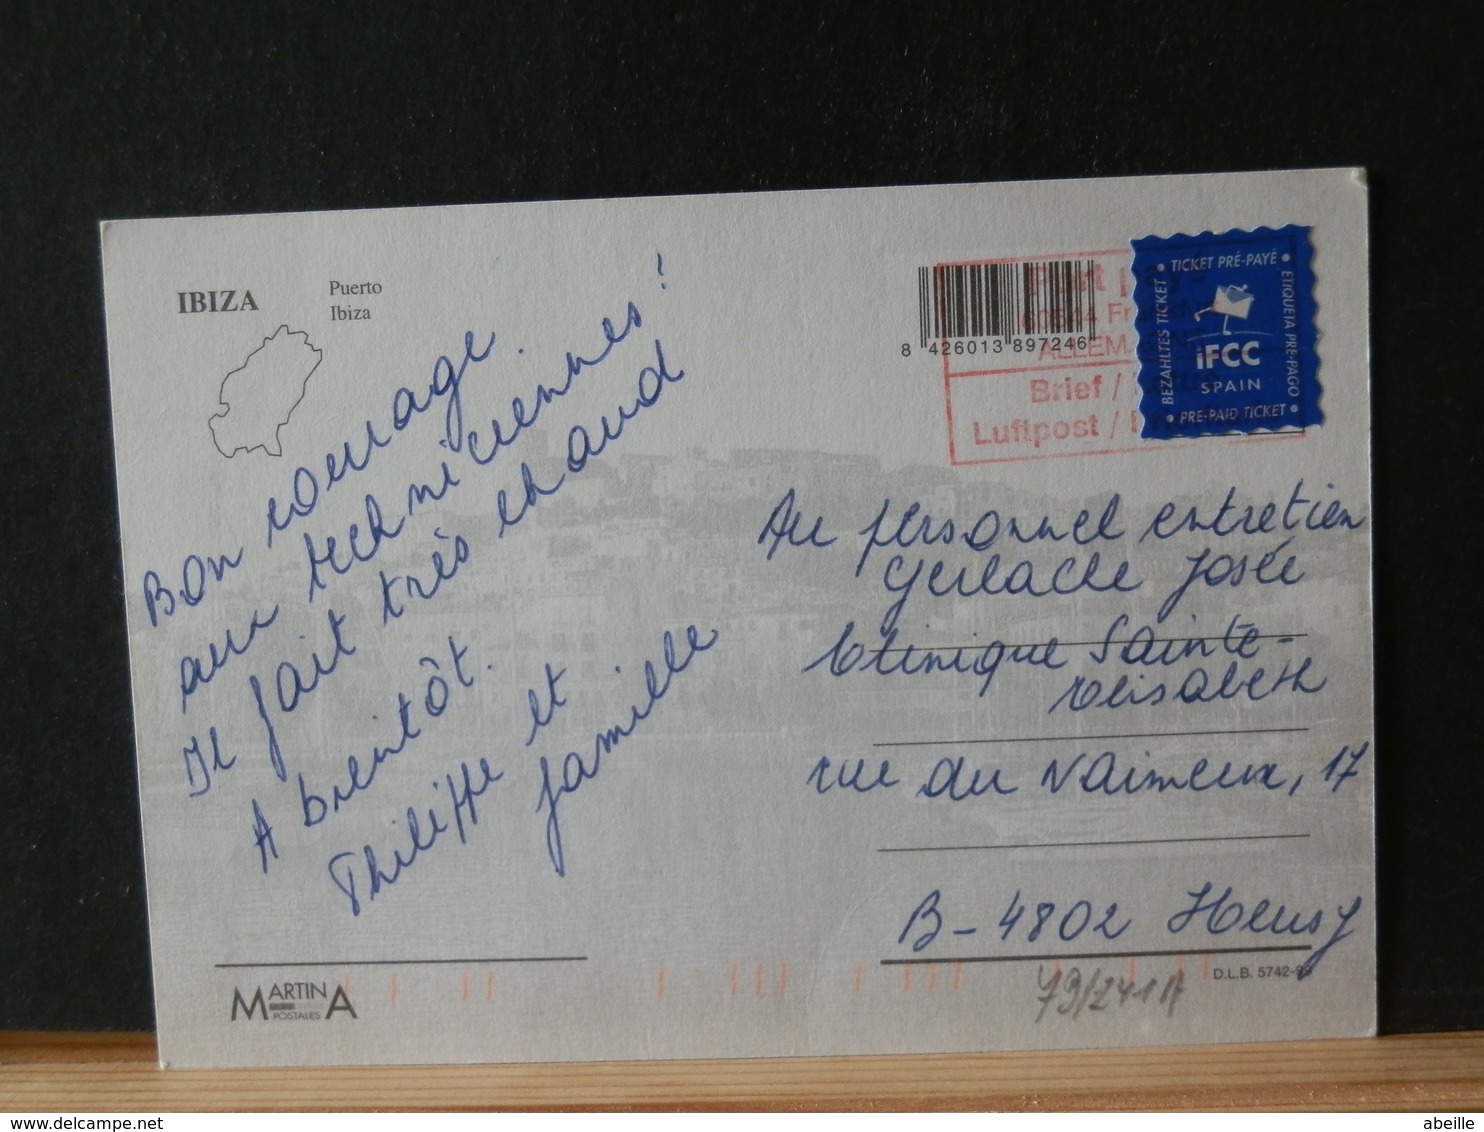 IBIZA
Puerto
Ibiza
Bon courage
aux techniciennes!
Il fait très chaud
A bientôt.
Philippe et
famille
8 426013 897246
Post
ALLEM
Brief /
Luftpost /
TICKET PRÉ-PAYÉ
ETIQUETA PRE-PAGO
PRE-PAID TICKET
BEZAHLTES TICKET
iFCC
SPAIN
Au personnel entretien
Gerlache Josée
Clinique Sainte-
Elisabeth
rue du Naimeux, 17
B-4802 Heusy
D.L.B. 5742-98
79/241A
MARTINA
POSTALES
abeille